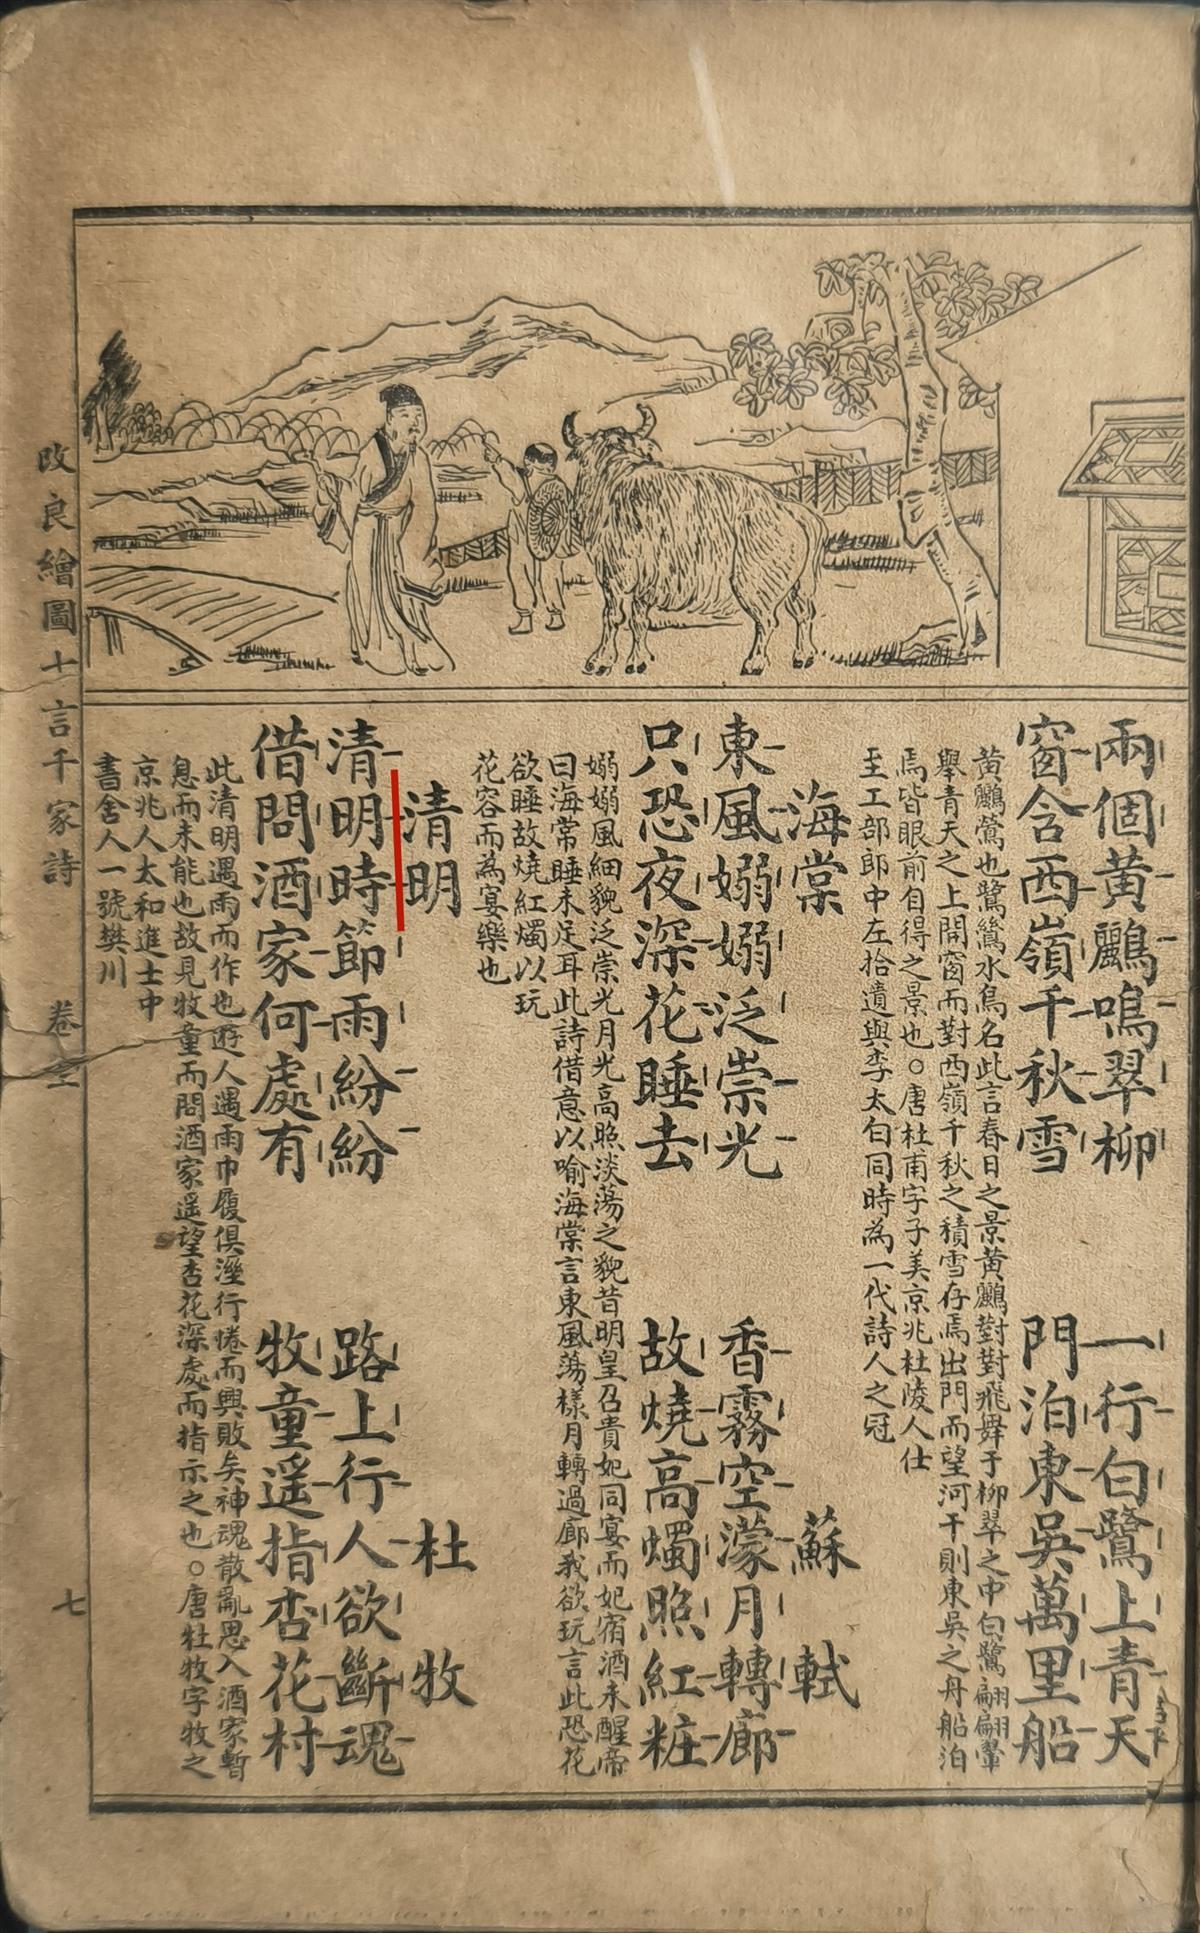 兩個黃鸝鳴翠柳
一行白鷺上青天
窗含西嶺千秋雪
門泊東吳萬里船
黃鸝鶯也鷺鷥水鳥名此言春日之景黃鸝對對飛舞于柳翠之中白鷺翩翩翬
舉青天之上開窗而對西嶺千秋之積雪存焉出門而望河干則東吳之舟船泊
焉皆眼前自得之景也○唐杜甫字子美京兆杜陵人仕
至工部郎中左拾遺與李太白同時為一代詩人之冠
海棠
蘇軾
東風嫋嫋泛崇光
香霧空濛月轉廊
只恐夜深花睡去
故燒高燭照紅粧
嫋嫋風細貌泛崇光月光高照淡蕩之貌昔明皇召貴妃同宴而妃宿酒未醒帝
曰海常睡未足耳此詩借意以喻海棠言東風蕩樣月轉過廊我欲玩言此恐花
欲睡故燒紅燭以玩
花容而為宴樂也
清明
杜牧
清明時節雨紛紛
路上行人欲斷魂
借問酒家何處有
牧童遥指杏花村
此清明遇雨而作也遊人遇雨巾履俱溼行倦而興敗矣神魂散亂思入酒家暫
息而未能也故見牧童而問酒家遥望杏花深處而指示之也○唐杜牧字牧之
京兆人太和進士中
書舍人一號樊川
改良繪圖七言千家詩
卷
七